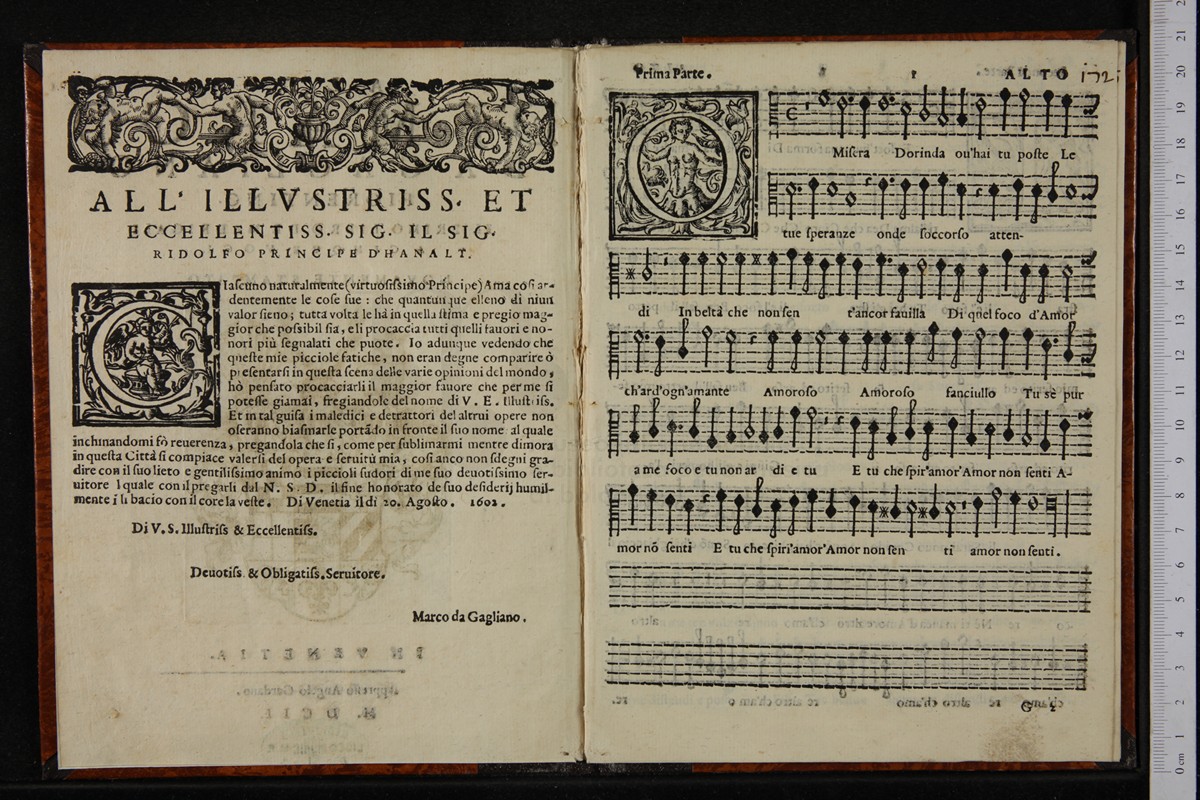 ALL' ILLVSTRISS. ET
ECCELLENTISS. SIG. IL SIG.
RIDOLFO PRINCIPE D'HANALT.
CIascuno naturalmente (virtuosissimo Principe) Ama cosi ar-
dentemente le cose sue : che quantunque elleno di niun
valor sieno; tutta volta le hà in quella stima e pregio mag-
gior che possibil sia, e li procaccia tutti quelli fauori e ho-
nori più segnalati che puote. Io adunque vedendo che
queste mie picciole fatiche, non eran degne comparire ò
presentarsi in questa scena delle varie opinioni del mondo,
hò pensato procacciarli il maggior fauore che per me si
potesse giamai, fregiandole del nome di V. E. Illustriss.
Et in tal guisa i maledici e detrattori del altrui opere non
oseranno biasmarle portãdo in fronte il suo nome al quale
inchinandomi fò reuerenza, pregandola che si, come per sublimarmi mentre dimora
in questa Città si compiace valersi del opera e seruitù mia, cosi anco non sdegni gra-
dire con il suo lieto e gentilissimo animo i piccioli sudori di me suo deuotissimo ser-
uitore l quale con il pregarli dal N. S. D. il fine honorato de suo desiderij humil-
mente i li bacio con il core la veste. Di Venetia il di 20. Agosto. 1602.
Di V. S. Illustriss & Eccellentiss.
Deuotiss & Obligatiss. Seruitore.
Marco da Gagliano.
Prima Parte. 1 ALTO 172
O Misera Dorinda ou'hai tu poste Le
tue speranze onde soccorso atten-
di In beltà che non sen t'ancor fauilla Di quel foco d'Amor
ch'ard'ogn'amante Amoroso Amoroso fanciullo Tu se pur
a me foco e tu non ar di e tu E tu che spir'amor'Amor non senti A-
mor nõ senti E tu che spiri'amor'Amor non sen ti amor non senti.
G 2